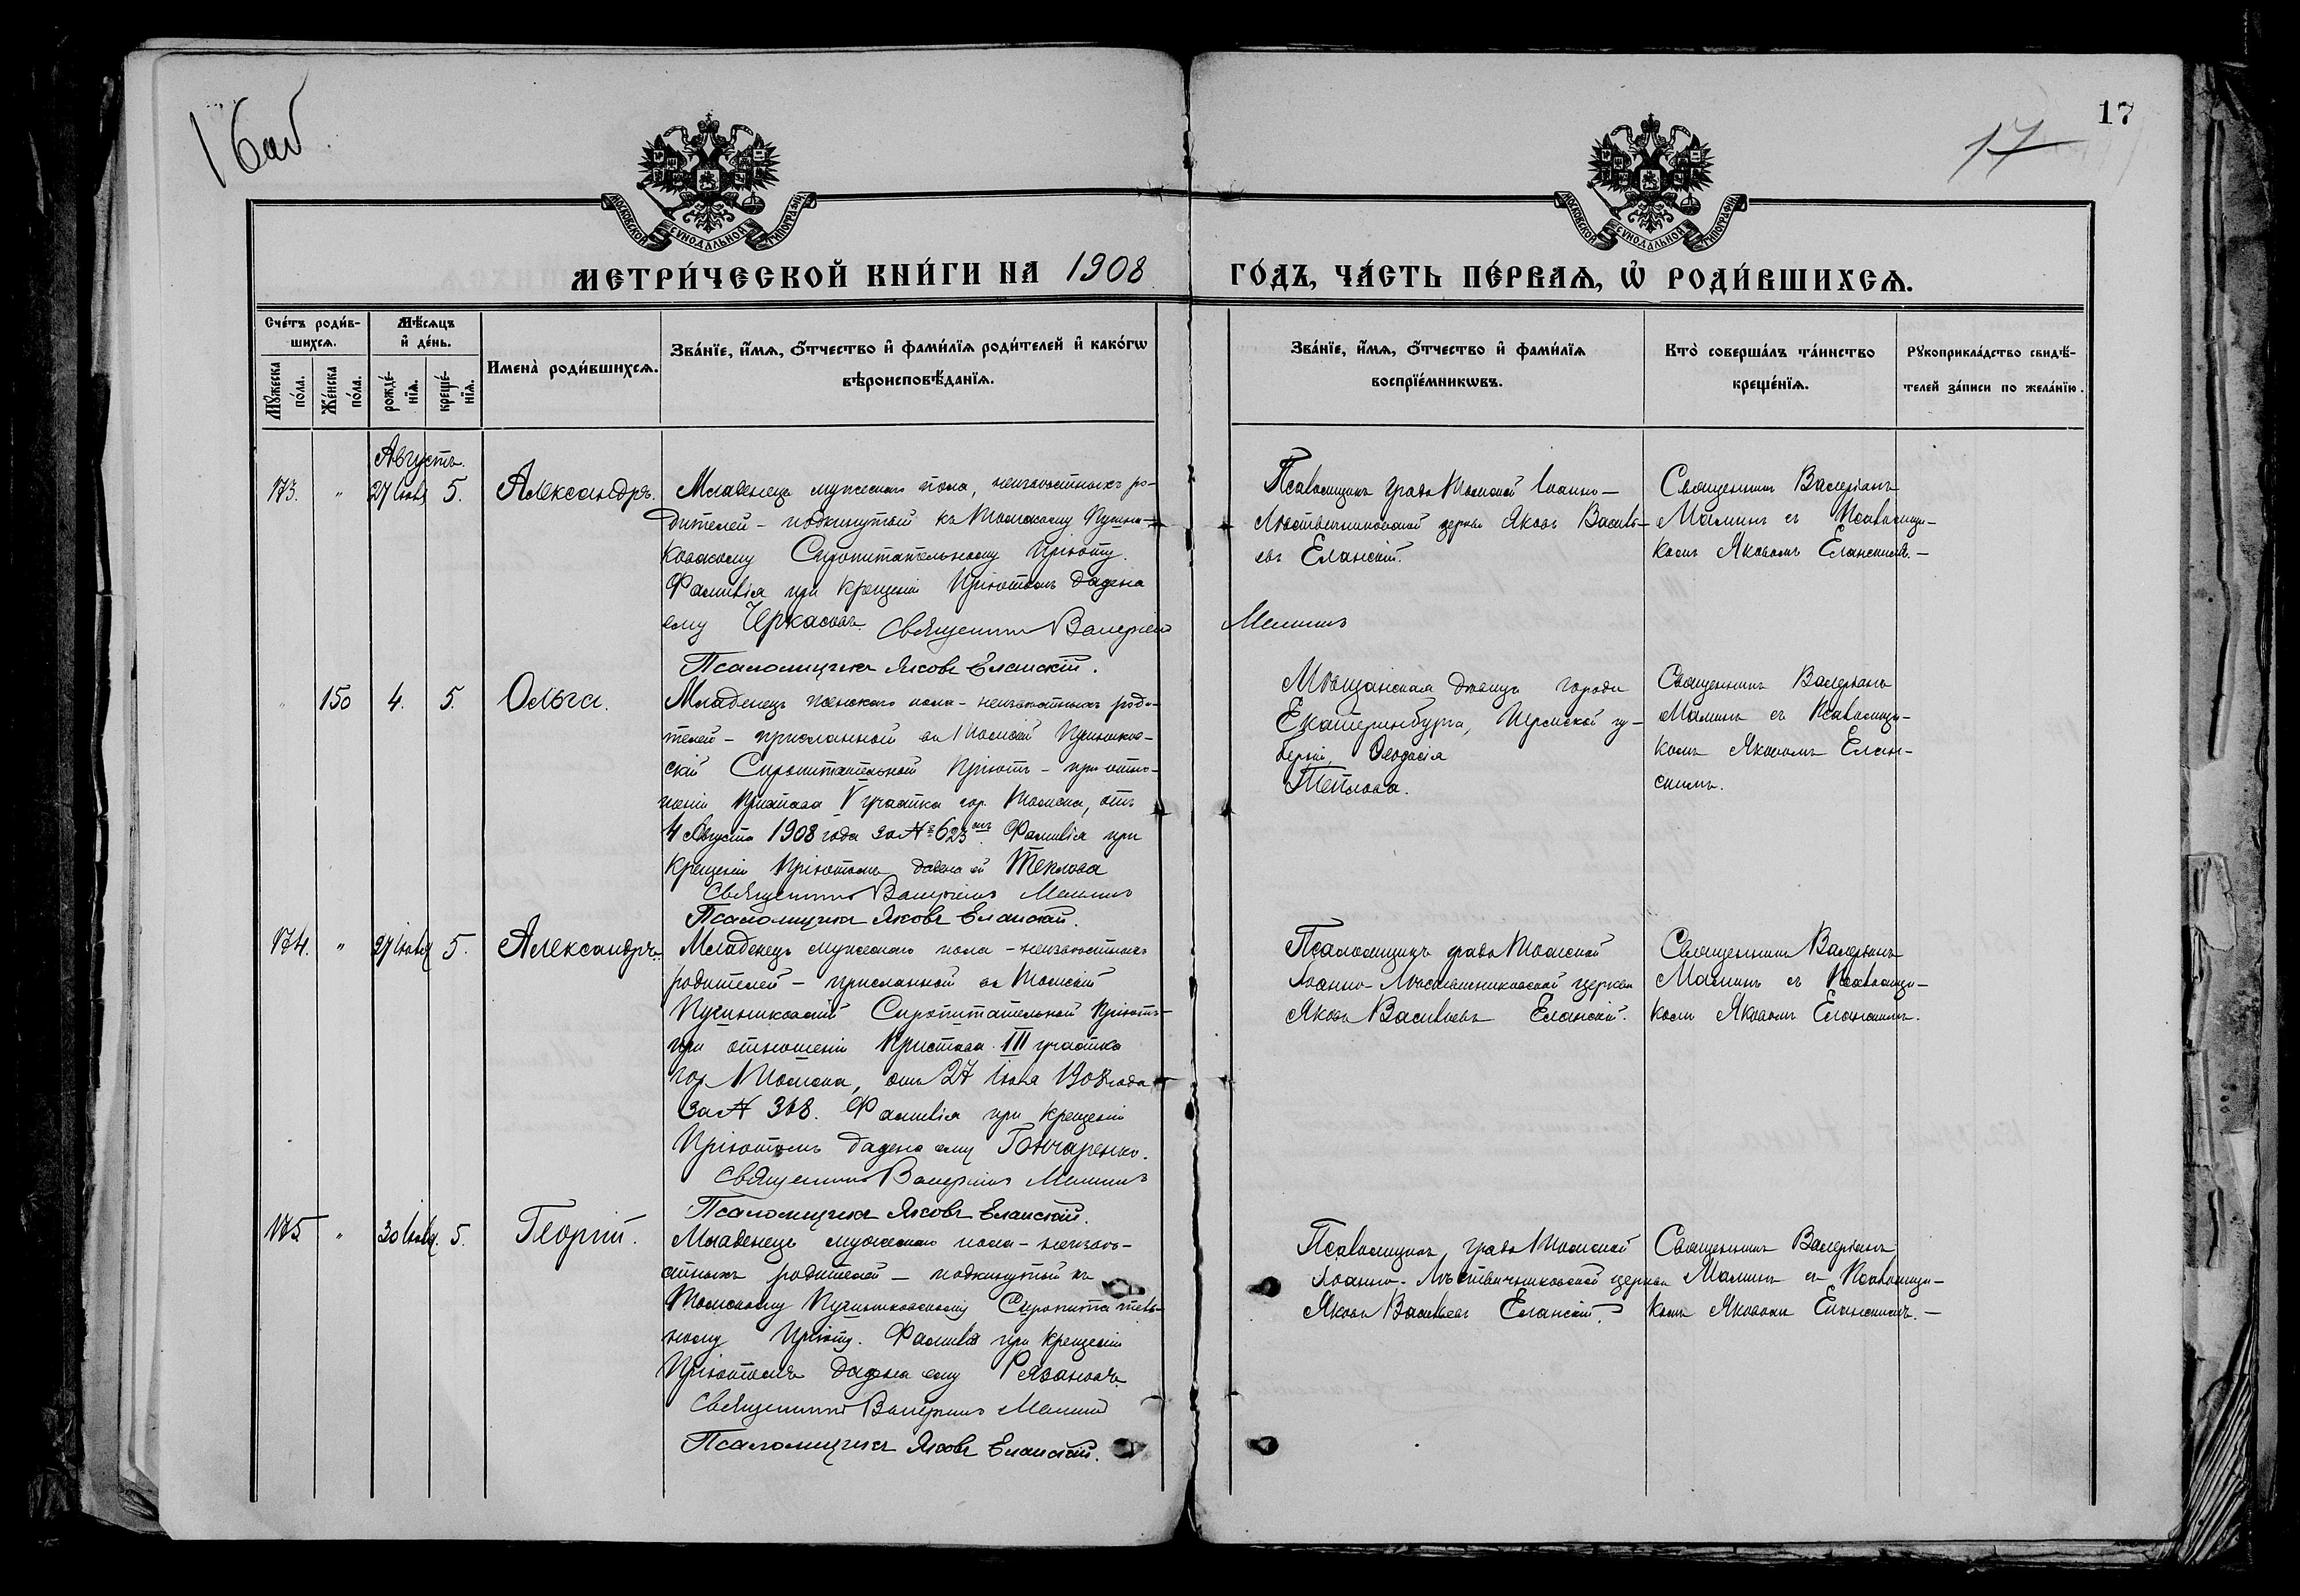 16 об
17
17
МОСКОВСКОЙ СѴНОДАЛЬНОЙ ТИПОГРАФІИ
МОСКОВСКОЙ СѴНОДАЛЬНОЙ ТИПОГРАФІИ
МЕТРИ́ЧЕСКОЙ КНИ́ГИ НА 1908 ГО́ДЪ, ЧА́СТЬ ПЕ́РВАѦ, Ѡ҆ РОДИ́ВШИХСѦ.
Сче́тъ роди́в-
шихсѧ.
Мѣ́сѧцъ
и҆ де́нь.
Мꙋ́жеска по́ла.
Же́нска по́ла.
рожде́-
нїѧ.
креще́-
нїѧ.
Имена̀ роди́вшихсѧ.
Зва́нїе, и҆́мѧ, ѻ҆́тчество и҆ фами́лїѧ роди́телей и҆ како́гѡ
вѣроисповѣ́данїѧ.
Зва́нїе, и҆́мѧ, ѻ҆́тчество и҆ фами́лїѧ
воспрїе́мникѡвъ.
Кто̀ соверша́лъ та́инство
креще́нїѧ.
Рꙋкоприкла́дство свидѣ́-
телей за́писи по жела́нїю.
Августъ.
173. " 27 Іюля 5. Александръ.
Младенецъ мужескаго пола, неизвѣстныхъ ро-
дителей - подкинутый къ Томскому Пушни-
ковскому Сиропитательному Пріюту.
Фамилія при крещеніи Пріютомъ дадена
ему Черкасовъ. Священникъ Валеріанъ Малинъ
Псаломщикъ Яковъ Еланскій.
Псаломщикъ градо Томской Іоанно-
Лѣствичниковской церкви Яковъ Василь-
евъ Еланскій.
Священникъ Валеріанъ
Малинъ съ Псаломщи-
комъ Яковомъ Еланскимъ. -
" 150 4. 5. Ольга.
Младенецъ женскаго пола - неизвѣстныхъ роди-
телей - присланной въ Томскій Пушников-
скій Сиропитательной Пріютъ - при отно-
шеніи Пристава V участка гор. Томска, отъ
4 Августа 1908 года за № 623. Фамилія при
крещеніи Пріютомъ дадена ей Теплова
Священникъ Валеріанъ Малинъ
Псаломщикъ Яковъ Еланскій.
Мѣщанская дѣвица города
Екатеринбурга, Пермской гу-
берніи, Ѳеодосія
Теплова.
Священникъ Валеріанъ
Малинъ съ Псаломщи-
комъ Яковомъ Елан-
скимъ.
174. " 27 Іюля 5. Александръ.
Младенецъ мужескаго пола - неизвѣстныхъ
родителей - присланной въ Томскій
Пушниковскій Сиропитательной Пріютъ-
при отношеніи Пристава III участка
гор. Томска, отъ 27 Іюля 1908 года
за № 368. Фамилія при крещеніи
Пріютомъ дадена ему Гончаренко.
Священникъ Валеріанъ Малинъ
Псаломщикъ Яковъ Еланскій.
Псаломщикъ градо Томской
Іоанно-Лѣствичниковской церкви
Яковъ Васильевъ Еланскій.
Священникъ Валеріанъ
Малинъ съ Псаломщи-
комъ Яковомъ Еланскимъ.
175 " 30 Іюля 5. Георгій.
Младенецъ мужескаго пола - неизвѣ-
стныхъ родителей - подкинутый къ
Томскому Пушниковскому Сиропитатель-
ному Пріюту. Фамилія при крещеніи
Пріютомъ дадена ему Рязановъ.
Священникъ Валеріанъ Малинъ
Псаломщикъ Яковъ Еланскій.
Псаломщикъ, градо Томской
Іоанно-Лѣствичниковской церкви
Яковъ Васильевъ Еланскій.
Священникъ Валеріанъ
Малинъ съ Псаломщи-
комъ Яковомъ Еланскимъ. -